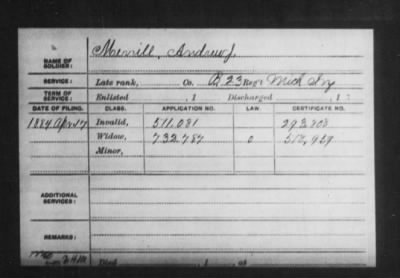 NAME OF SOLDIER: Merrill, Andrew J.
SERVICE: Late rank, Co. B 23 Reg't Mich Inf
TERM OF SERVICE: Enlisted , 1 Discharged , 1
DATE OF FILING. CLASS. APPLICATION NO. LAW. CERTIFICATE NO.
1884 Apr 17 Invalid, 511,081 293,808
Widow, 732,787 0 518,959
Minor,
ADDITIONAL SERVICES:
REMARKS:
Died , 1 , at